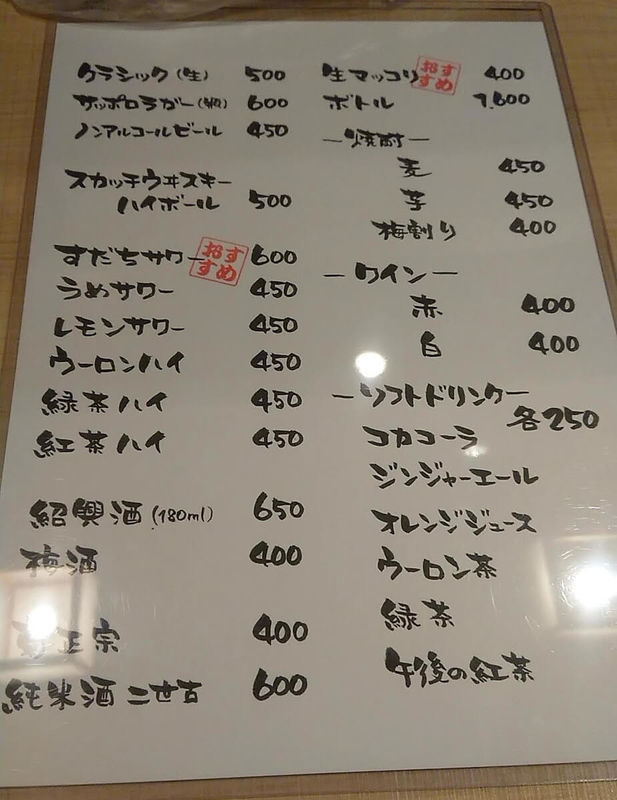 クラシック(生) 500
サッポロラガー(瓶) 600
ノンアルコールビール 450
スカッチウヰスキー
ハイボール 500
すだちサワー おすすめ 600
うめサワー 450
レモンサワー 450
ウーロンハイ 450
緑茶ハイ 450
紅茶ハイ 450
紹興酒(180ml) 650
梅酒 400
正宗 400
純米酒 二世古 600
生マッコリ おすすめ 400
ボトル 1,600
ー焼酎ー
麦 450
芋 450
梅割り 400
ーワインー
赤 400
白 400
ーソフトドリンクー
各250
コカコーラ
ジンジャーエール
オレンジジュース
ウーロン茶
緑茶
午後の紅茶